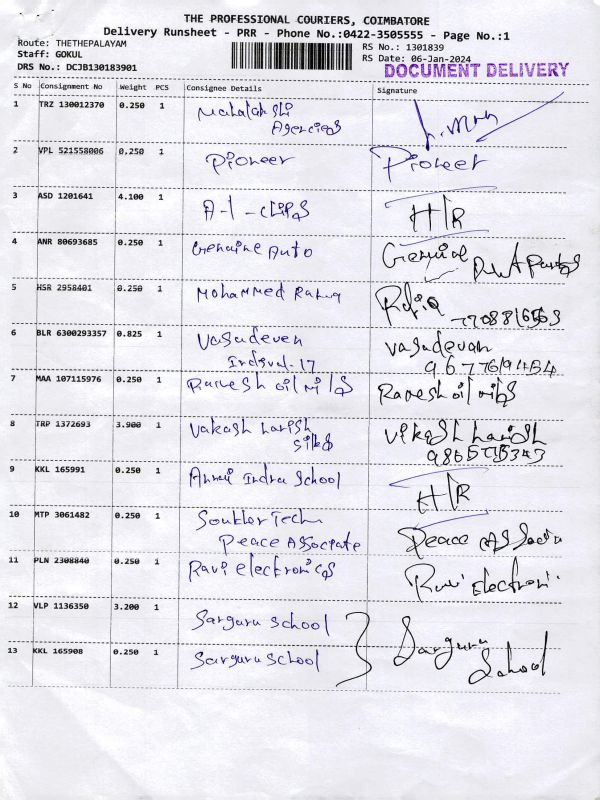 THE PROFESSIONAL COURIERS, COIMBATORE
Delivery Runsheet - PRR - Phone No.:0422-3505555 - Page No.:1
Route: THETHEPALAYAM
RS No.: 1301839
Staff: GOKUL
RS Date: 06-Jan-2024
DRS No.: DCJB130183901
DOCUMENT DELIVERY
S No Consignment No Weight PCS Consignee Details Signature
1 TRZ 130012370 0.250 1 Mahalakshi
Agencies
2 VPL 521558006 0.250 1 Pioneer Pioneer
3 ASD 1201641 4.100 1 A-1-chips H/R
4 ANR 80693685 0.250 1 Genuine Auto
5 HSR 2958401 0.250 1 Mohammed Rafiq Rafiq
6 BLR 6300293357 0.825 1 Vasudeven vasudevan
17
7 MAA 107115976 0.250 1 Ramesh oil mills Ramesh oil mills
8 TRP 1372693 3.900 1 Vakash harish Vikash harish
silks
9 KKL 165991 0.250 1 Indra School H/R
10 MTP 3061482 0.250 1 Tech
Peace Associate Peace
11 PLN 2308840 0.250 1 Ravi electronics Ravi Electroni
12 VLP 1136350 3.200 1 Sarguru school Sarguru
School
13 KKL 165908 0.250 1 Sarguru school